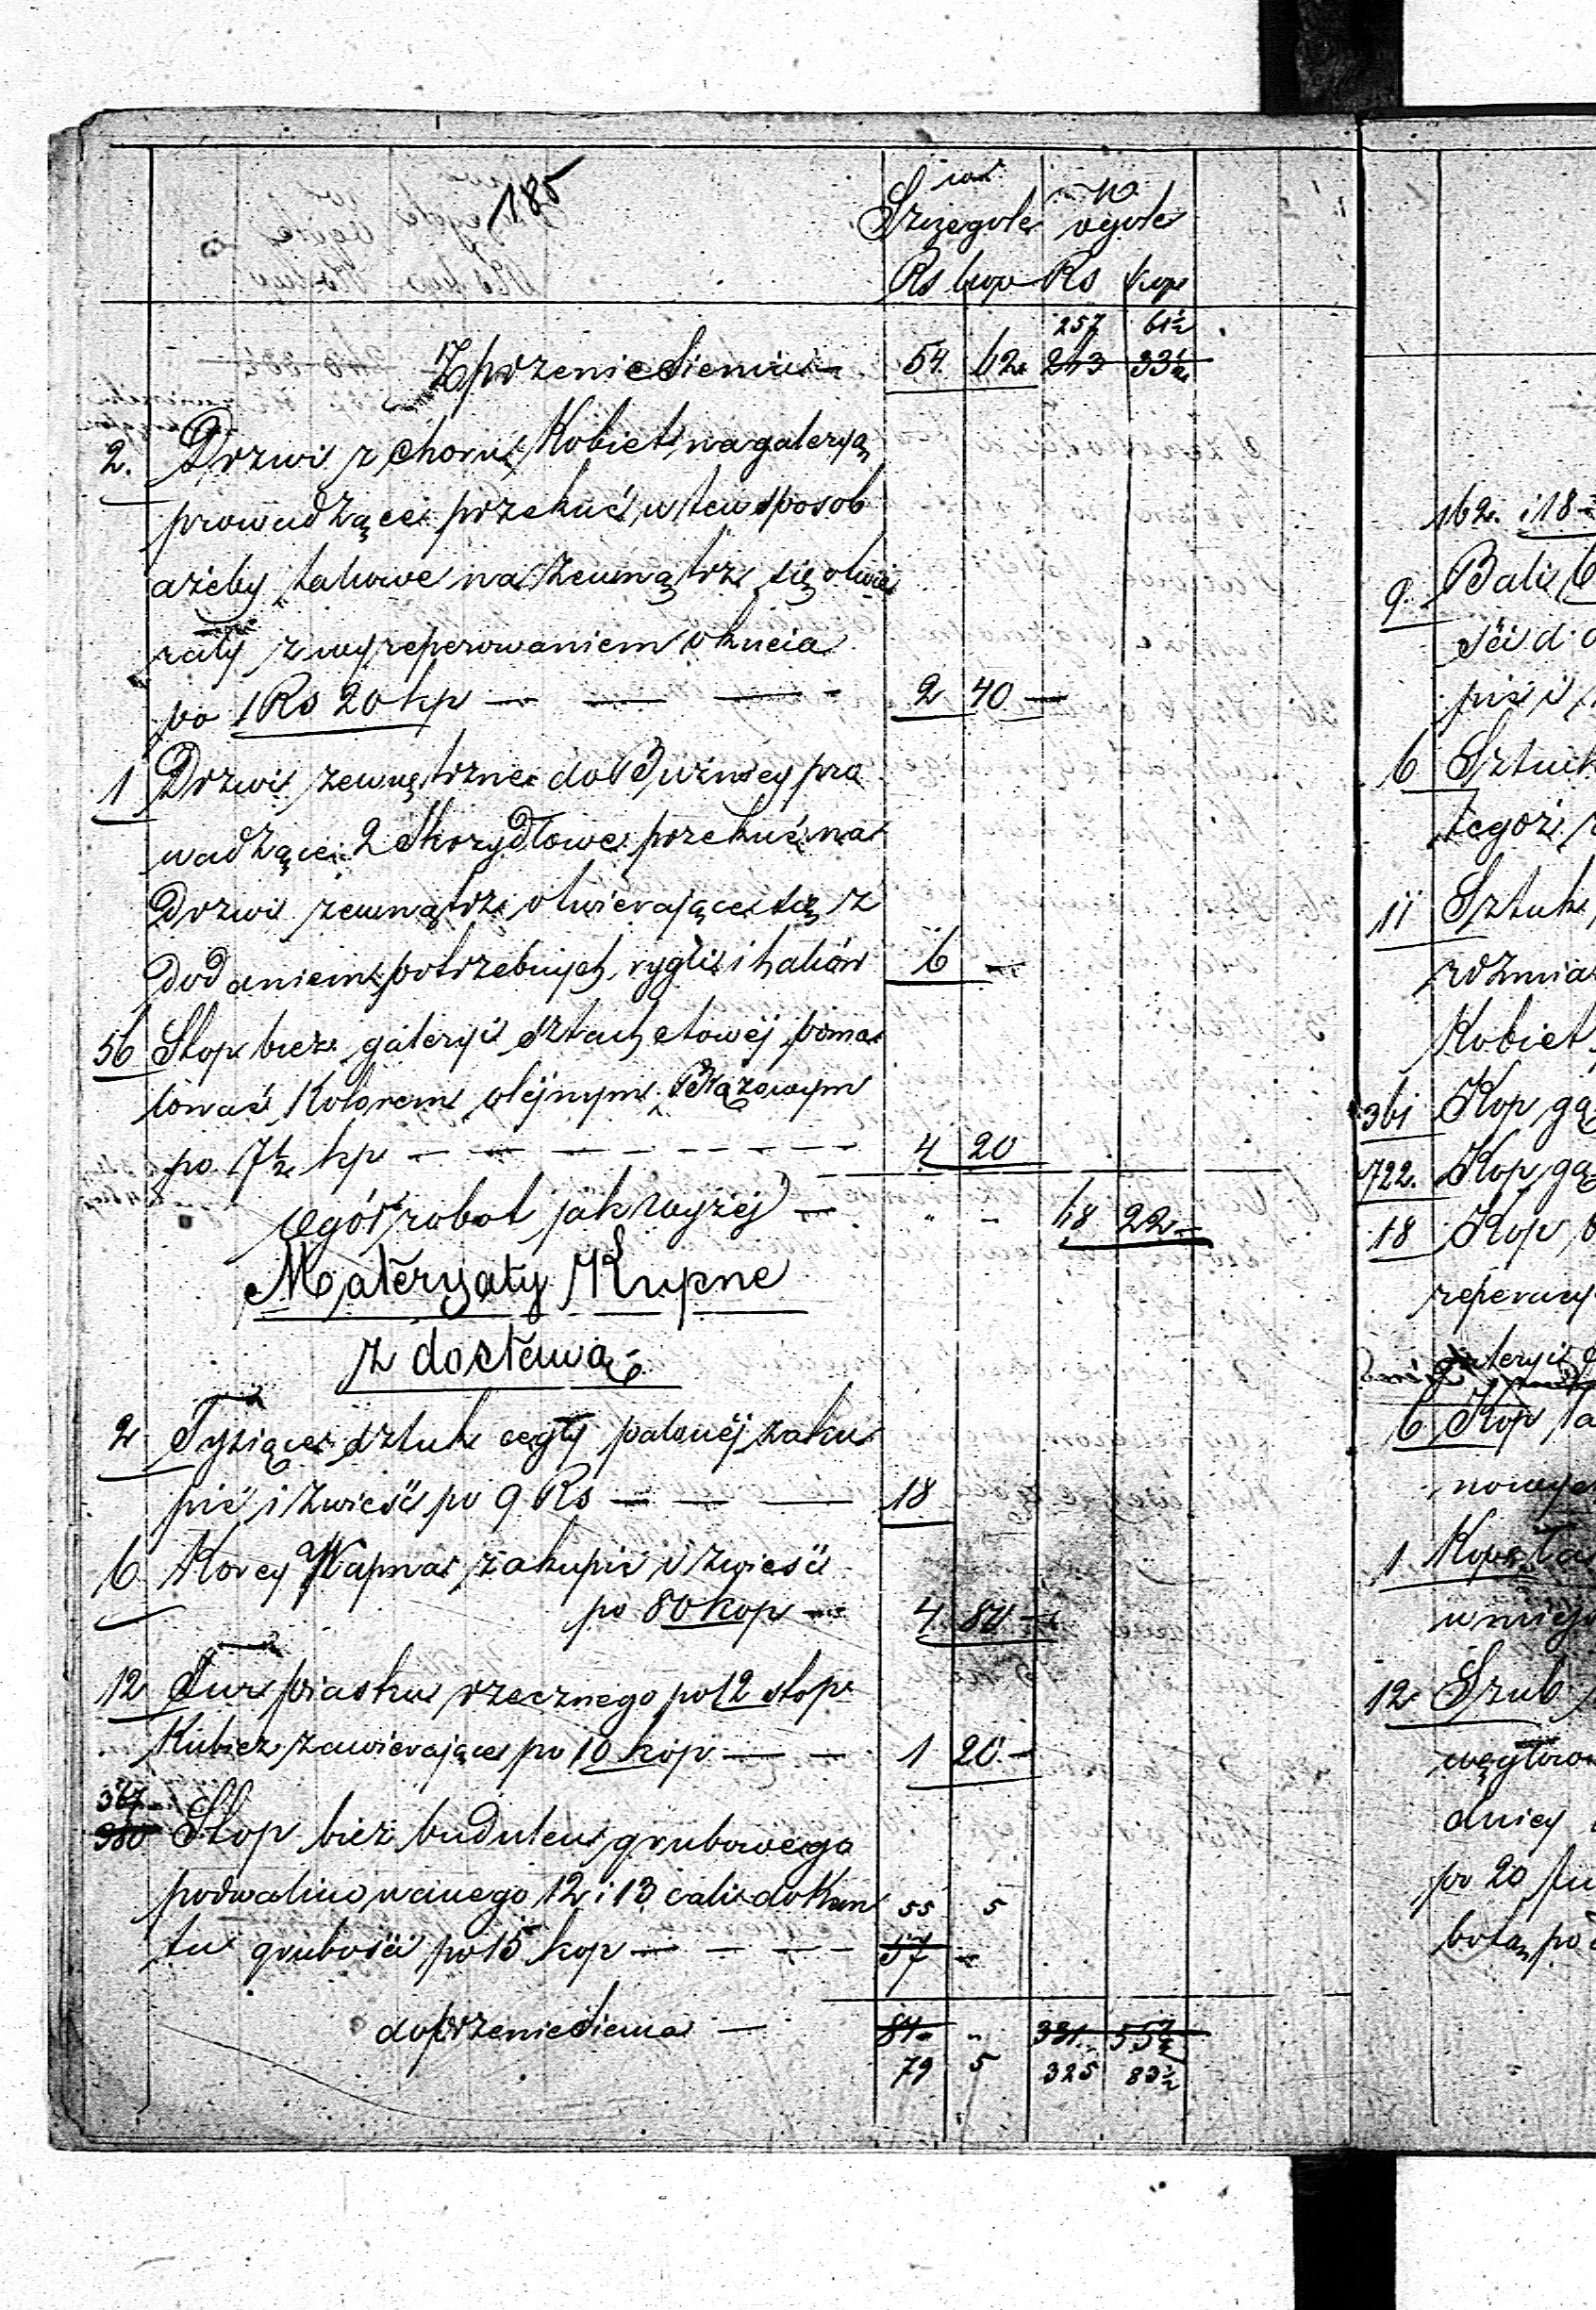 185
w w
Szczegole ogole
Rs kop Rs kop
257 61½
Z przeniesienia 54. 62 263 33½
2. Drzwi z choru Kobiet na galeryą
prowadzące przekuć w ten sposob
ażeby takowe na zewnątrz się otwie
rały z wyreperowaniem okucia
po 1 Rs 20 kp — — — 2 40 —
1 Drzwi zewnętrzne do Bużnicy pro
wadzące 2 Skrzydłowe przekuć na
Drzwi zewnątrz otwierające się z
Dodaniem potrzebnych rygli i haków 6 —
56 Stop bież galeryi sztachetowéj poma
lować Kolorem oléjnym Brązowym
po 7½ kp — — — — — — — 4 20
Ogół robot jak wyżéj — " - 68 22 —
Materyały Kupne
z dostawą
2 Tysiące sztuk cegły palonéj zaku
pić i zwieść po 9 Rs — — — 18
6 Korcy Wapna zakupić i zwieść
po 80 kop — 4 80 —
12 Fur piasku rzecznego po 12 stop
Kubicz zawierające po 10 kop — — 1 20 —
367
380 Stop bież budulcu grubowego
podwalinowanego 12 i 13 cali do Kan 55 5
tu grubości po 15 kop — — — — 57 —
do przeniesienia — 84 " 331 55½
79 5 325 83½
162. i 18
9. Bali 6
ści d
pić i
6 Sztuk
tegoż
11 Sztuk
rozmia
Kobiet
361 Kop gą
722. Kop gą
18 Kop
reperacy
6 Kop
nowych
1 Kop
w miejs
12 Szub
węgłow
dnicy
po 20 fu
botą po